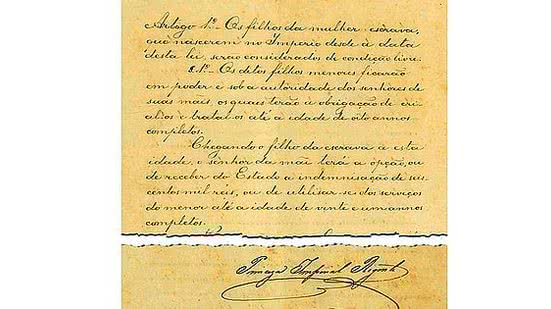 Artogo 1º - Os filhos da mulher escrava,
que nascerem no Imperio desde a data
desta lei, serao considerados de condição livre.
§.1º - Os ditos filhos menores ficarão
em poder e sob a autoridade dos senhores de
suas mais, os quaes terão a obrigação de cri-
al-os e tratal-os até a idade de oito annos
completos.
Chegando o filho da escrava a esta
idade, o senhor da mãe terá a opção, ou
de receber do Estado a indemnisação de seis
centos mil réis, ou de utilisar-se dos serviços
do menor até a idade de vinte e um annos
completos.
Princeza Imperial Regente